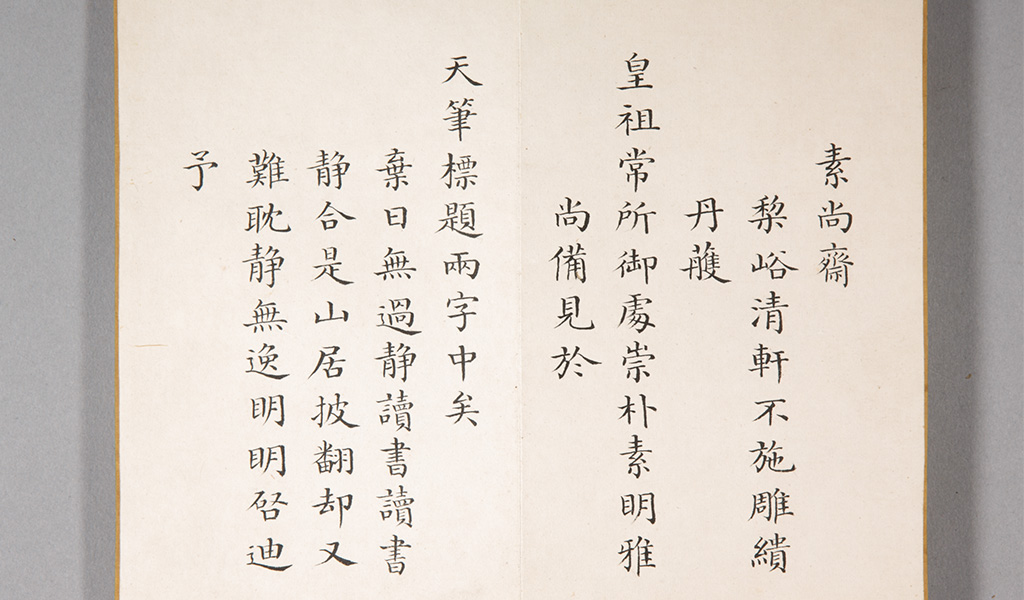 素尚齋
棃峪清軒不施雕繢
丹雘
皇祖常所御處崇朴素明雅
尚備見於
天筆標題兩字中矣
棄日無過静讀書讀書
静合是山居披翻却又
難耽静無逸明明啓迪
予